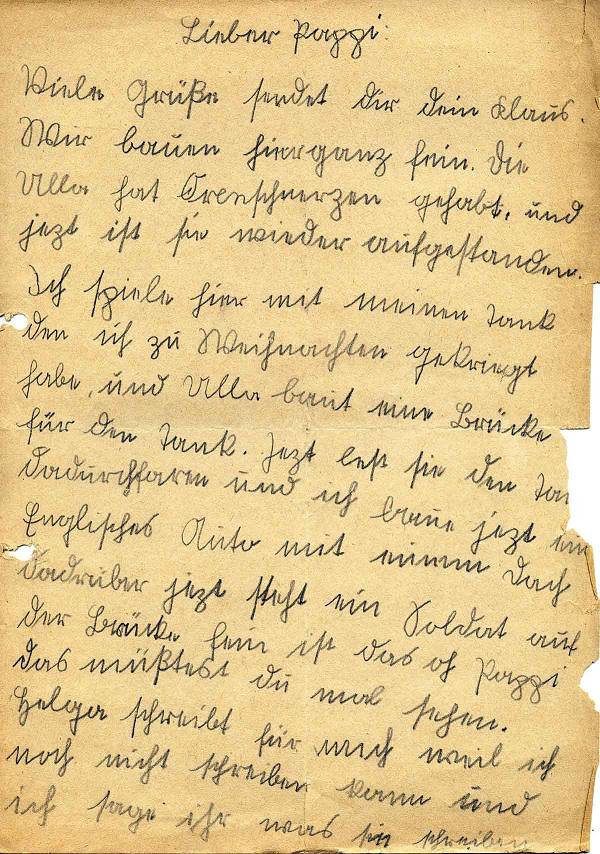 Lieber Pappi:
Viele Grüße sendet dir dein Klaus.
Wir bauen hier ganz fein. Die
Ulla hat Orenschnerzen gehabt, und
jezt ist sie wieder aufgestanden.
Ich spiele hier mit meinen Tank
den ich zu Weihnachten gekriegt
habe, und Ulla baut eine Brücke
für den Tank. Jezt lest sie den Tan
dadurchfaren und ich baue jezt ein
Englisches Auto mit einem Dach
dadrüber jezt steht ein Soldat auf
der Brücke fein ist das oh Pappi
das müßtest du mal sehen.
Helga schreibt für mich weil ich
noch nicht schreiben kann und
ich sage ihr was sie schreiben